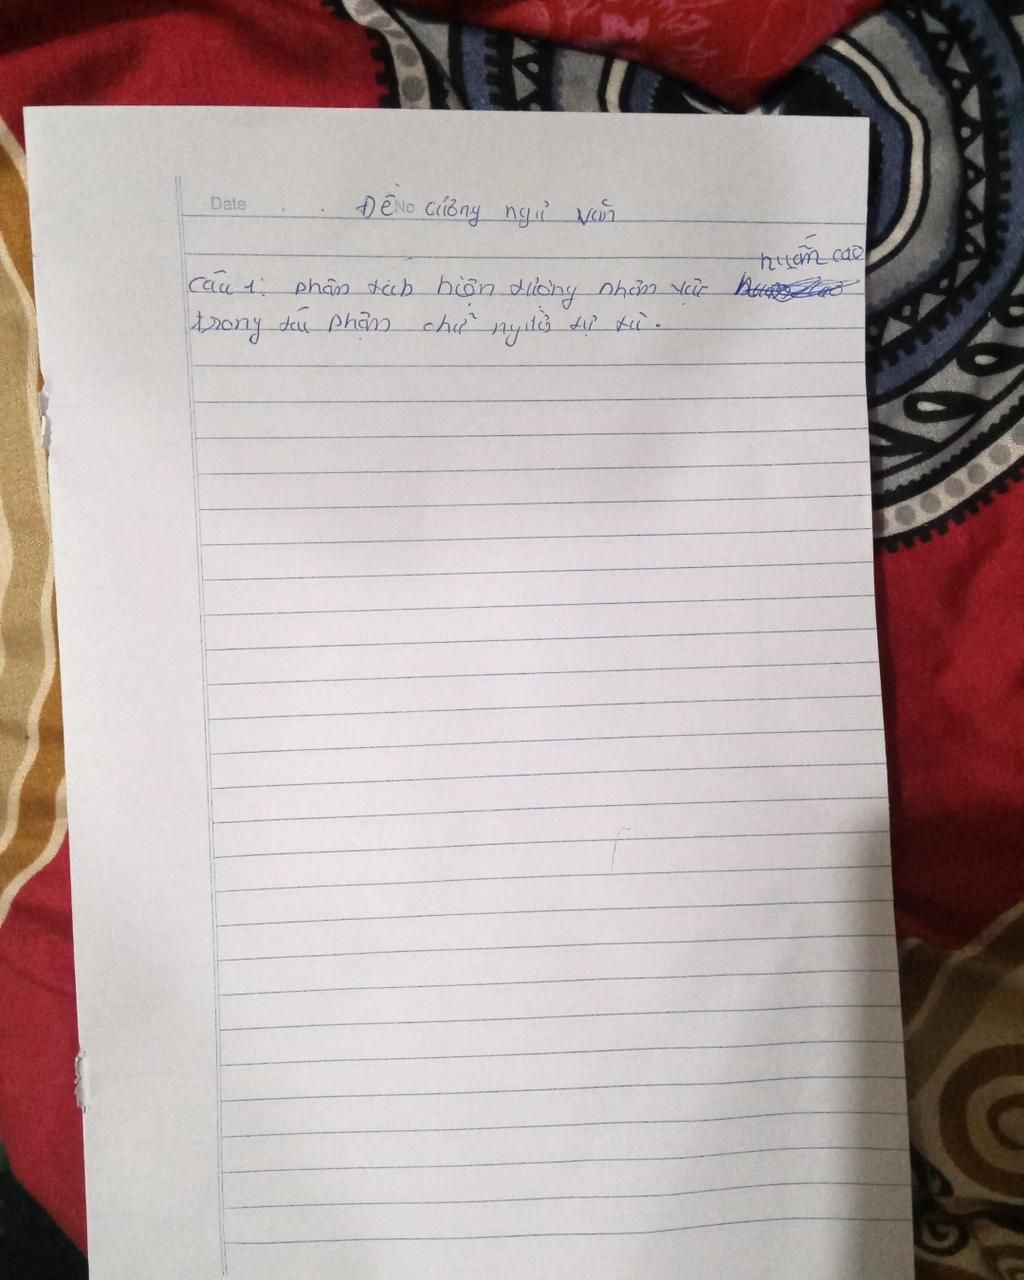 Date . . No
Đề cương ngữ văn
huấn cao
Câu 1: phân tích hiện tượng nhân vật
trong tác phẩm chữ người tự tù.